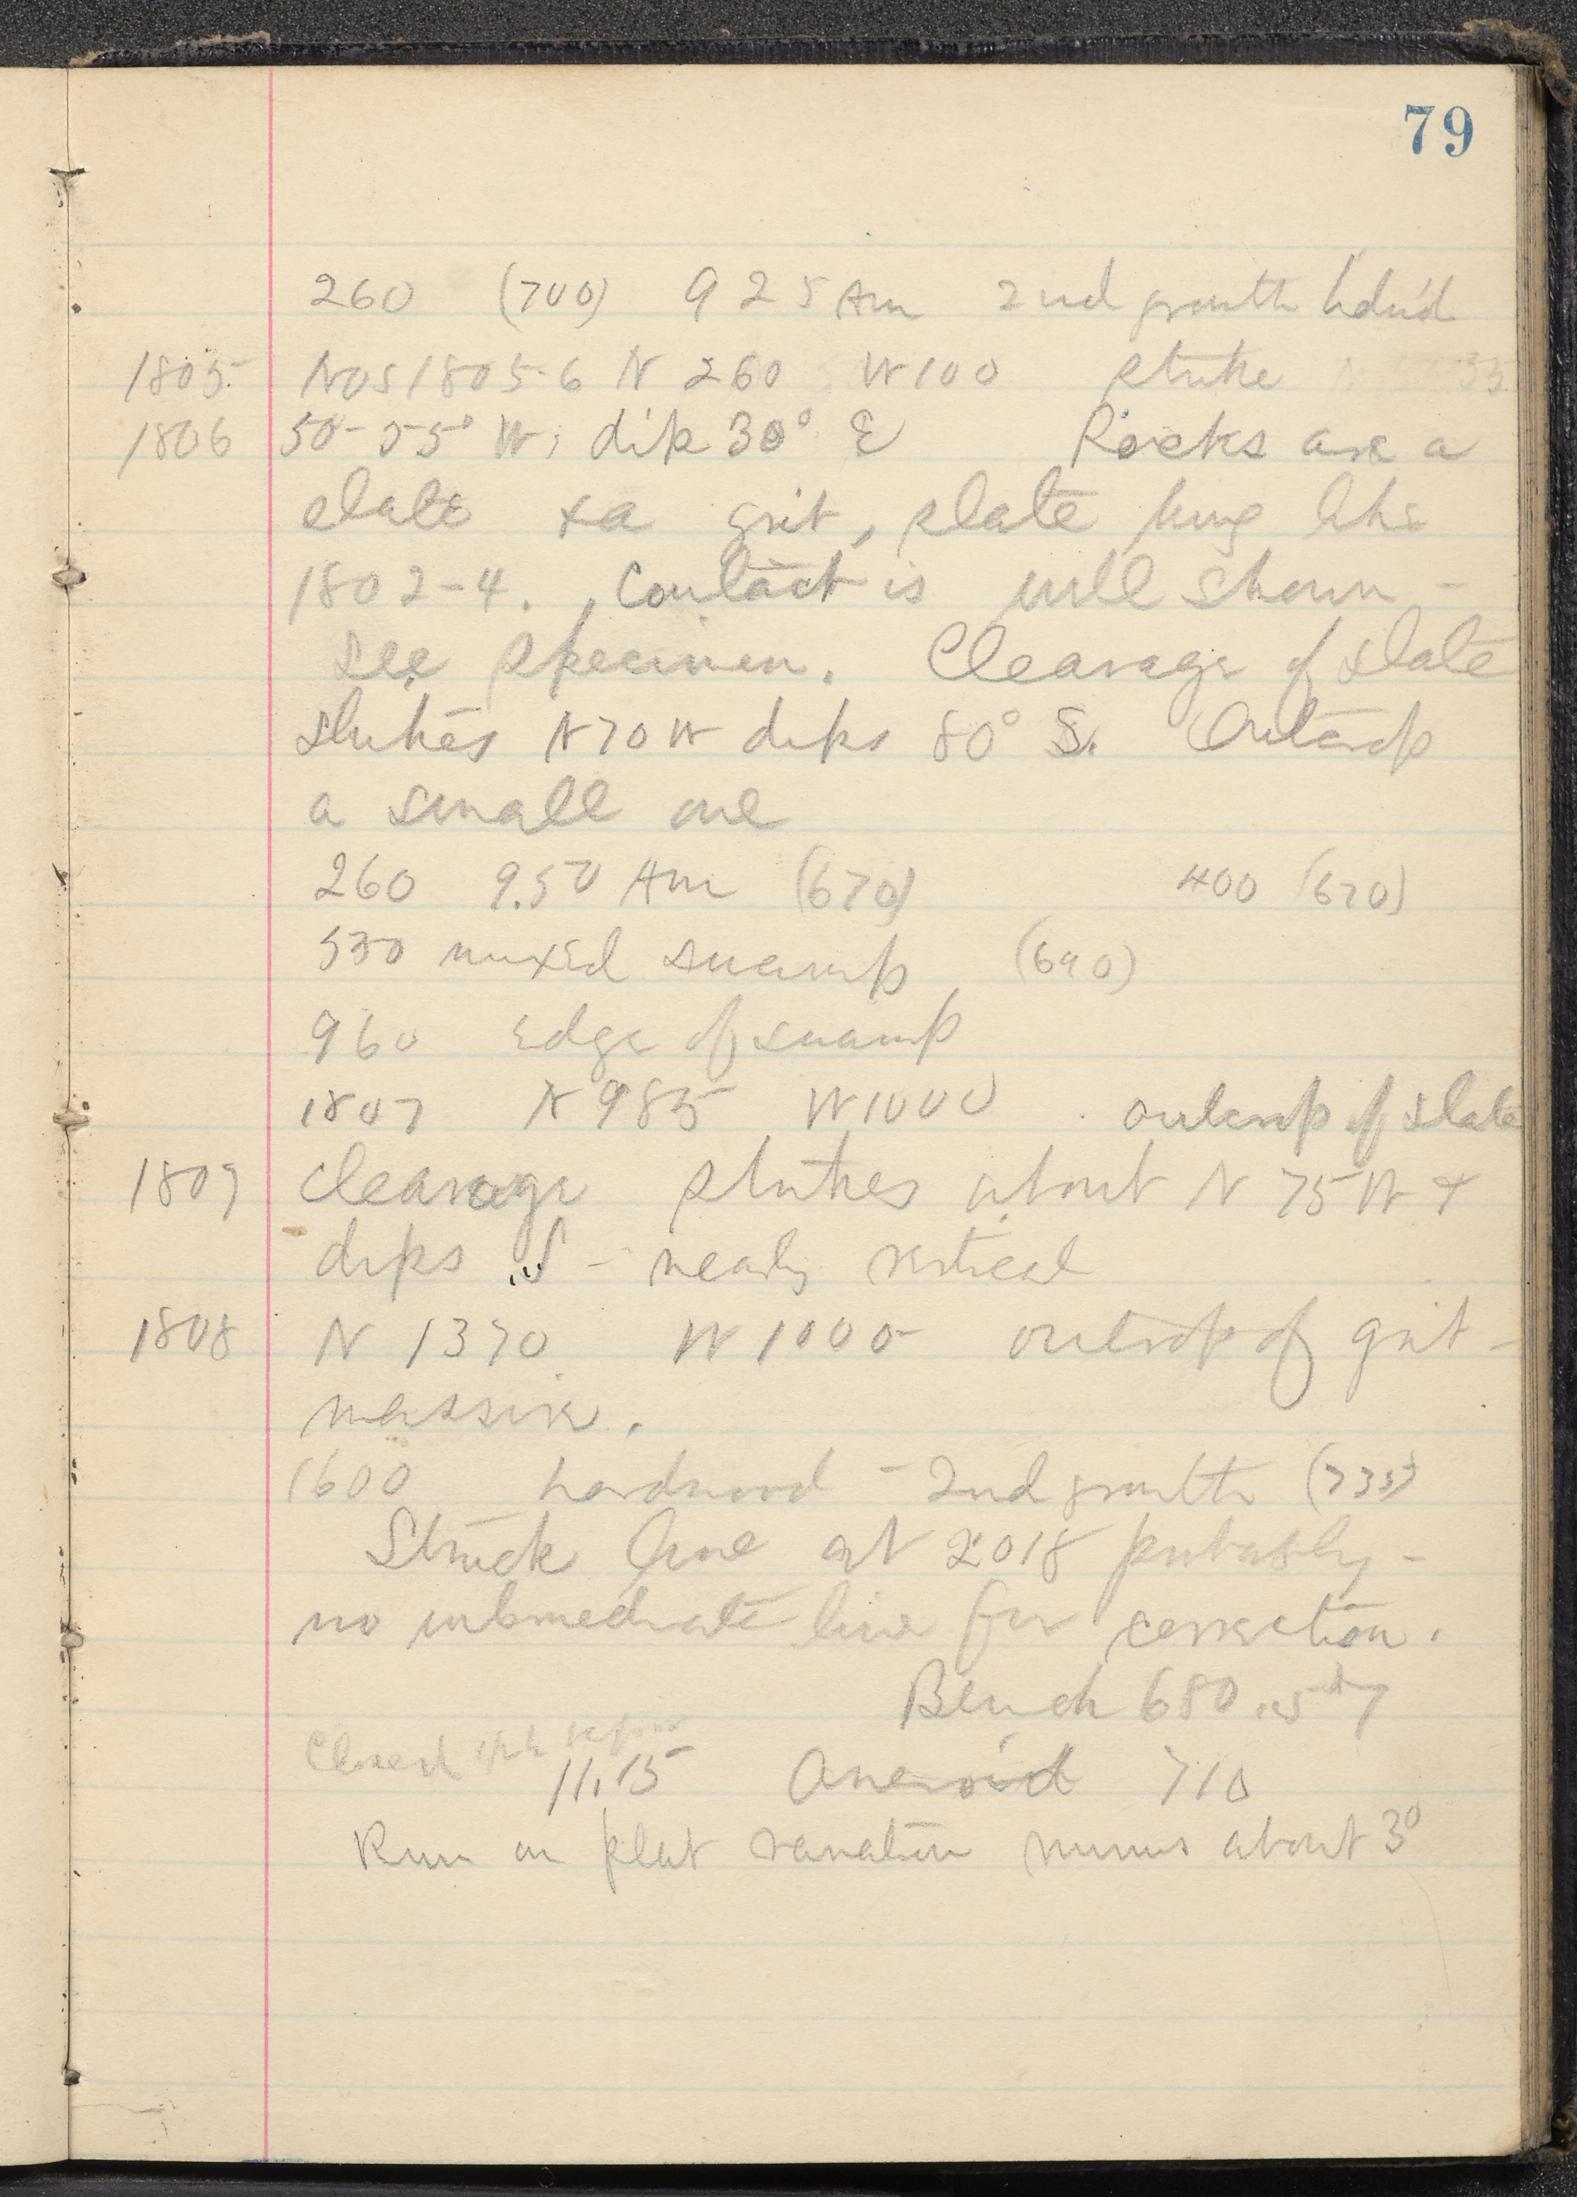 79
260 (700) 9 25 Am 2nd growth hdw'd
1805 Nos 1805-6 N 260 W 100 strike
1806 50-55° W; dip 30° E Rocks are a
slate & a grit, slate being like
1802-4. Contact is well shown -
see specimen. Cleavage of slate
strikes N 70 W dips 80° S. Outcrop
a small one
260 9.50 Am (670) 400 (670)
530 mixed swamp (690)
960 Edge of swamp
1807 N 985 W 1000 outcrop of slate
1807 Cleavage strikes about N 75 W &
dips S - nearly vertical
1808 N 1370 W 1000 outcrop of grit -
massive.
1600 hardwood - 2nd growth (735)
Struck line at 2018 probably -
no intermediate line for correction.
Bench 680
Closed
11.15 Aneroid 710
Run on plat variation minus about 3°